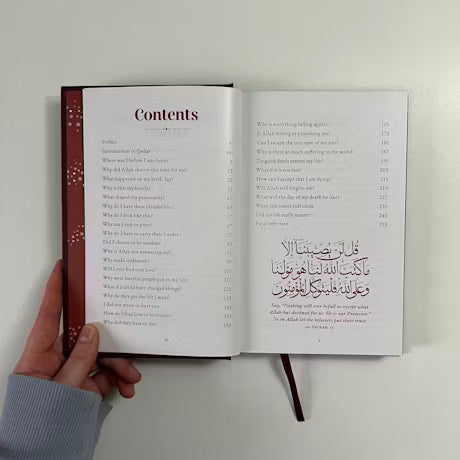 Contents
Preface
Introduction to Qadar
Where was I before I was born?
Why did Allah choose this time for me?
What happened on my birth day?
Why is this my family?
What shaped my personality?
Why do I have these (dis)abilities?
Why do I look like this?
Why am I sick or pain?
Why do I have to carry their burden?
Did I choose to be Muslim?
Why is Allah not answering me?
Why make
Will I ever find true love?
Why were harmful people put in my life?
What if I could have changed things?
Why do they get the life I want?
I did not mean to hurt you
How do I find love in loneliness?
Why did they have to die?
Why is everything falling apart?
Is Allah testing or punishing me?
Can I escape the outcome of my sins?
Why is there so much suffering in the world?
Do good deeds extend my life?
What if it is too late?
How can I accept that I am dying?
Will Allah still forgive me?
What will the day of my death be like?
When life comes full circle
Did my life really matter?
Final reflection
قل لن يصيبنا إلا
ما كتب الله لنا هو مولنا
وعلى الله فليتوكل المؤمنون
Say, "Nothing will ever befall us except what
Allah has destined for us. He is our Protector."
So in Allah let the believers put their trust.
AT-TAWBAH, 51